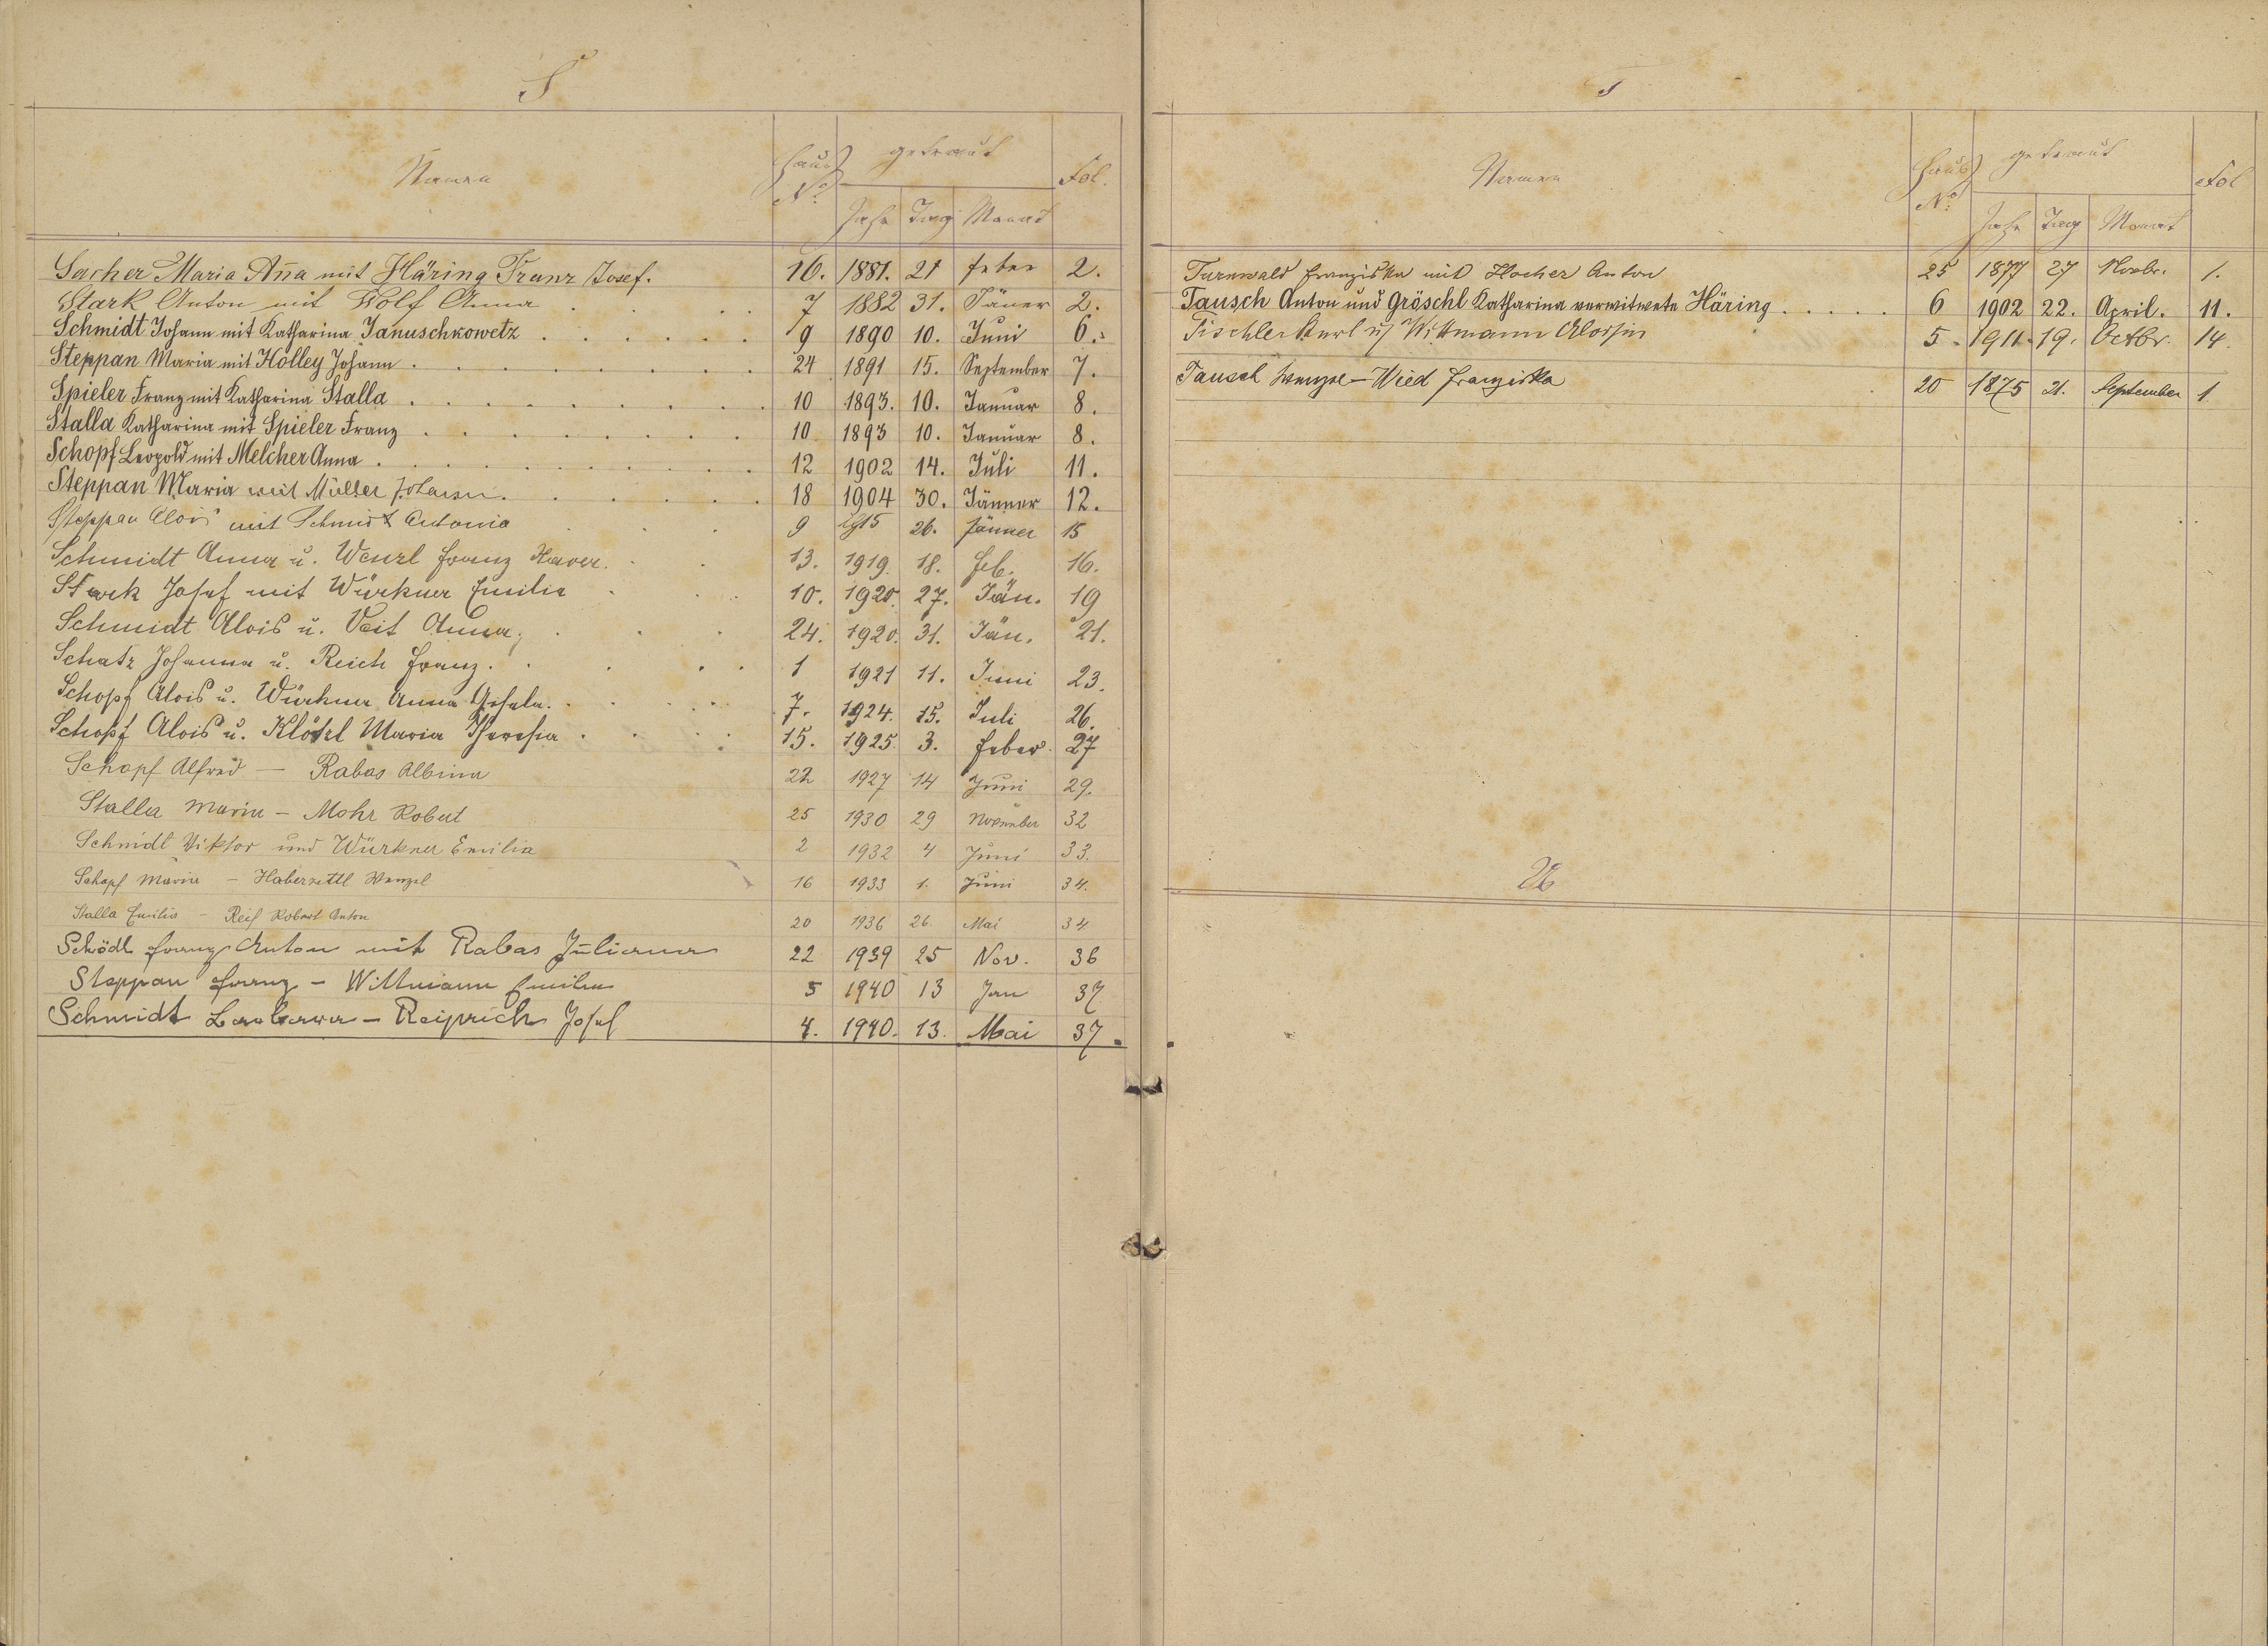 S
Namen Haus No. getraut Fol.
Jahr Tag Monat
Sacher Maria Ana mit Häring Franz Josef. 16. 1881. 21 Feber 2.
Stark Anton mit Wolf Anna 7 1882 31. Jäner 2.
Schmidt Johann mit Katharina Januschkowetz 9 1890 10. Juni 6.
Steppan Maria mit Holley Johann 24 1891 15. September 7.
Spieler Franz mit Katharina Stalla 10 1893. 10. Januar 8.
Stalla Katharina mit Spieler Franz 10 1893 10. Januar 8.
Schopf Leopold mit Melcher Anna 12 1902 14. Juli 11.
Steppan Maria mit Müller Johann 18 1904 30. Jänner 12.
Steppan Alois mit Schmidt Antonia 9 1915 26. Jänner 15
Schmidt Anna u. Wenzl Franz Xaver. 13. 1919. 18. Feb. 16.
Stark Josef mit Würkner Emilie 10. 1920. 27. Jän. 19
Schmidt Alois u. Veit Anna 24. 1920. 31. Jän. 21.
Schatz Johanna u. Reich Franz. 1 1921 11. Juni 23.
Schopf Alois u. Würkner Anna Gisela. 7. 1924. 15. Juli 26.
Schopf Alois u. Klötzl Maria Theresia 15. 1925. 3. Feber 27
Schopf Alfred – Rabas Albina 22 1927 14 Juni 29.
Stalla Marie – Mohr Robert 25 1930 29 November 32
Schmidt Viktor und Würkner Emilia 2 1932 4 Juni 33.
Schopf Marie – Haberzettl Wenzel 16 1933 1. Juni 34.
Stalla Emilia – Reif Robert Anton 20 1936 26. Mai 34
Schödl Franz Anton mit Rabas Juliana 22 1939 25 Nov. 36
Steppan Franz – Wittmann Emilie 5 1940 13 Jan 37
Schmidt Barbara – Reiprich Josef 4. 1940. 13. Mai 37.
T
Namen Haus No. getraut Fol
Jahr Tag Monat
Turnwald Franziska mit Hocher Anton 25 1877 27 Novbr. 1.
Tausch Anton und Gröschl Katharina verwitwete Häring 6 1902 22. April. 11.
Tischler Karl u. Wittmann Aloisia 5. 1911. 19. Octbr. 14.
Tausch Wenzel – Wied Franziska 20 1875 21. September 1
U